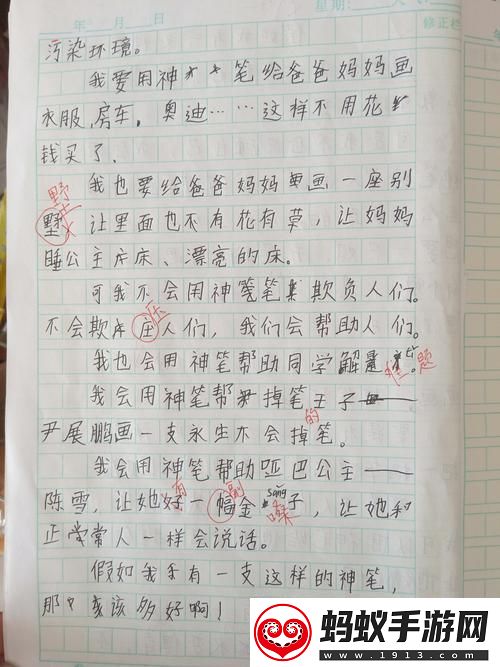 年 月 日
星期:
修正栏
污染环境。
我要用神笔给爸爸妈妈画
衣服,房车,奥迪……这样不用花
钱买了、
野
我也要给爸爸妈妈画一座别
墅 让里面也不有花有草,让妈妈
睡公主床、漂亮的床。
可我不会用神笔欺负人们。
压
不会欺庄人们,我们会帮助人们。
我也会用神笔帮助同学解 难题。
我会用神笔帮掉笔王子——
的
尹展鹏画一支永生不会掉笔。
我会用神笔帮助哑巴公主——
有 副
陈雪,让她好一幅金sǎng子,让她和
嗓
正常人一样会说话。
假如我有一支这样的神笔,
那该多好啊!
蚂蚁手游网
www.1913.com